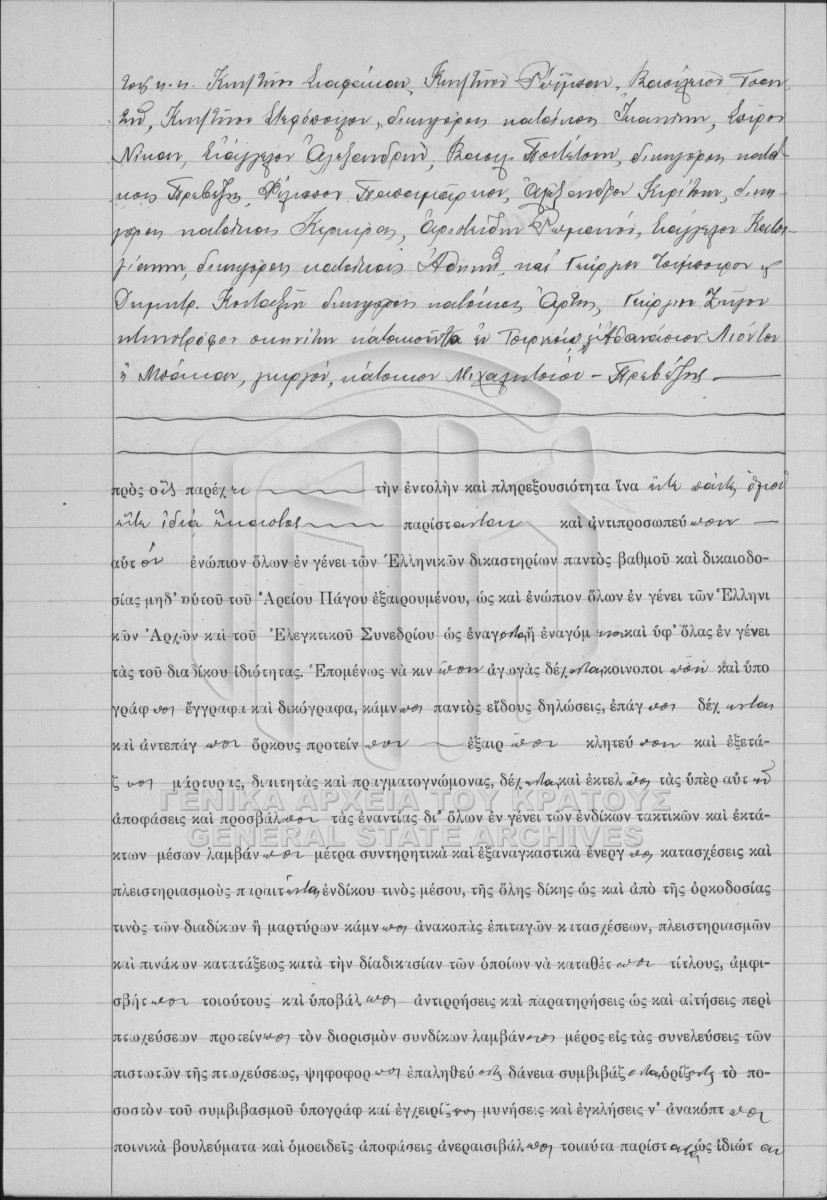 τοὺς κ. κ. Κωνστῖνον Κωνστῖνον Βασίλειον
Κωνστῖνον δικηγόρους κατοίκους Σπῦρον
Νίκαν, Εὐάγγελον Ἀλεξανδρῆ, Βασιλ. δικηγόρους κατοί-
κους Πρεβέζης, Φίλιππον Παπαμάρκου, Ἀλέξανδρον δικη-
γόρους κατοίκους Κερκύρας, Ἀριστείδην Ρωμανόν, Εὐάγγελον
δικηγόρους κατοίκους Ἀθηνῶν, καὶ Γεώργιον
Δημήτρ. δικηγόρους κατοίκους Ἄρτης, Γεώργιον
κτηνοτρόφον σκηνίτην κατοικοῦντα ἐν Ἀθανάσιον
ἢ γεωργόν, κάτοικον Μιχαλιτσίου – Πρεβέζης
πρὸς οὓς παρέχει τὴν ἐντολὴν καὶ πληρεξουσιότητα ἵνα εἴτε πάντες ὁμοῦ
εἴτε ἰδίᾳ ἕκαστος παρίστανται καὶ ἀντιπροσωπεύωσιν
αὐτὸν ἐνώπιον ὅλων ἐν γένει τῶν Ἑλληνικῶν δικαστηρίων παντὸς βαθμοῦ καὶ δικαιοδο-
σίας μηδ' αὐτοῦ τοῦ Ἀρείου Πάγου ἐξαιρουμένου, ὡς καὶ ἐνώπιον ὅλων ἐν γένει τῶν Ἑλληνι
κῶν Ἀρχῶν καὶ τοῦ Ἐλεγκτικοῦ Συνεδρίου ὡς ἐναγοντα, ἢ ἐναγόμενον καὶ ὑφ' ὅλας ἐν γένει
τὰς τοῦ διαδίκου ἰδιότητας. Ἑπομένως νὰ κινῶσιν ἀγωγὰς δέχωνται, κοινοποιῶσιν καὶ ὑπο
γράφωσι ἔγγραφα καὶ δικόγραφα, κάμνωσι παντὸς εἴδους δηλώσεις, ἐπάγωσι δέχωνται
καὶ ἀντεπάγωσι ὅρκους προτείνωσι ἐξαιρῶσι κλητεύωσι καὶ ἐξετά-
ζωσι μάρτυρας, διαιτητὰς καὶ πραγματογνώμονας, δέχωνται καὶ ἐκτελῶσι τὰς ὑπὲρ αὐτοῦ
ἀποφάσεις καὶ προσβάλωσι τὰς ἐναντίας δι' ὅλων ἐν γένει τῶν ἐνδίκων τακτικῶν καὶ ἐκτά-
κτων μέσων λαμβάνωσι μέτρα συντηρητικὰ καὶ ἐξαναγκαστικὰ ἐνεργῶσι κατασχέσεις καὶ
πλειστηριασμοὺς παραιτῶνται ἐνδίκου τινὸς μέσου, τῆς ὅλης δίκης ὡς καὶ ἀπὸ τῆς ὁρκοδοσίας
τινὸς τῶν διαδίκων ἢ μαρτύρων κάμνωσι ἀνακοπὰς ἐπιταγῶν κατασχέσεων, πλειστηριασμῶν
καὶ πινάκων κατατάξεως κατὰ τὴν διαδικασίαν τῶν ὁποίων νὰ καταθέτωσι τίτλους, ἀμφι-
σβητῶσι τοιούτους καὶ ὑποβάλωσι ἀντιρρήσεις καὶ παρατηρήσεις ὡς καὶ αἰτήσεις περὶ
πτωχεύσεων προτείνωσι τὸν διορισμὸν συνδίκων λαμβάνωσι μέρος εἰς τὰς συνελεύσεις τῶν
πιστωτῶν τῆς πτωχεύσεως, ψηφοφορῶσι ἐπαληθεύωσι δάνεια συμβιβάζωνται, ὁρίζοντες τὸ πο-
σοστὸν τοῦ συμβιβασμοῦ ὑπογράφ καὶ ἐγχειρίζωσι μυνήσεις καὶ ἐγκλήσεις ν' ἀνακόπτωσι
ποινικὰ βουλεύματα καὶ ὁμοειδεῖς ἀποφάσεις ἀνεραισιβάλωσι τοιαῦτα παρίστανται ὡς ἰδιώται
ΓΕΝΙΚΑ ΑΡΧΕΙΑ ΤΟΥ ΚΡΑΤΟΥΣ
GENERAL STATE ARCHIVES